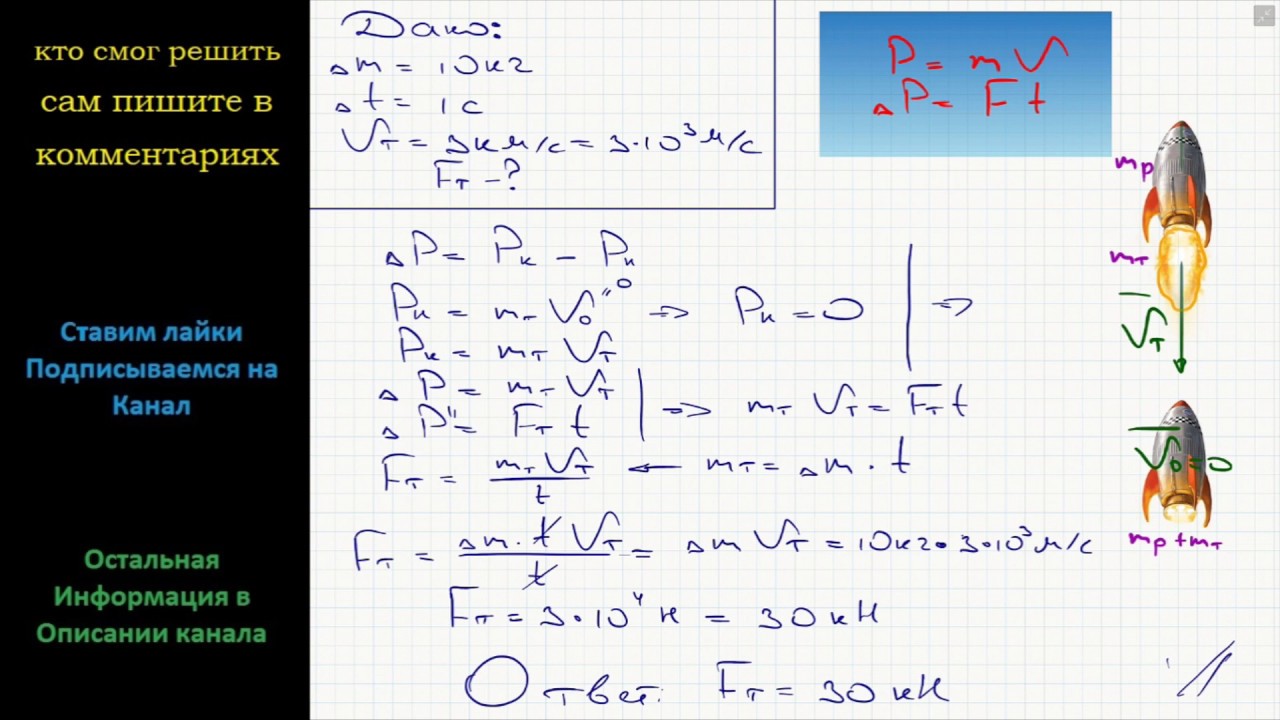 кто смог решить
сам пишите в
комментариях
Ставим лайки
Подписываемся на
Канал
Остальная
Информация в
Описании канала
Дано:
Δm = 10кг
Δt = 1с
Vт = 3км/с = 3·10³м/с
Fт - ?
P = mV
ΔP = Ft
ΔP = Pк - Pн
Pн = mт V₀ "0 => Pн = 0 | =>
Pк = mт Vт
ΔP = mт Vт
ΔP" = Fт t | => mт Vт = Fт t
Fт = mт Vт / t ← mт = Δm · t
Fт = Δm · t Vт / t = Δm Vт = 10кг · 3·10³м/с
Fт = 3·10⁴ Н = 30 кН
Ответ: Fт = 30 кН
mр
mт
Vт
V₀ = 0
mр + mт